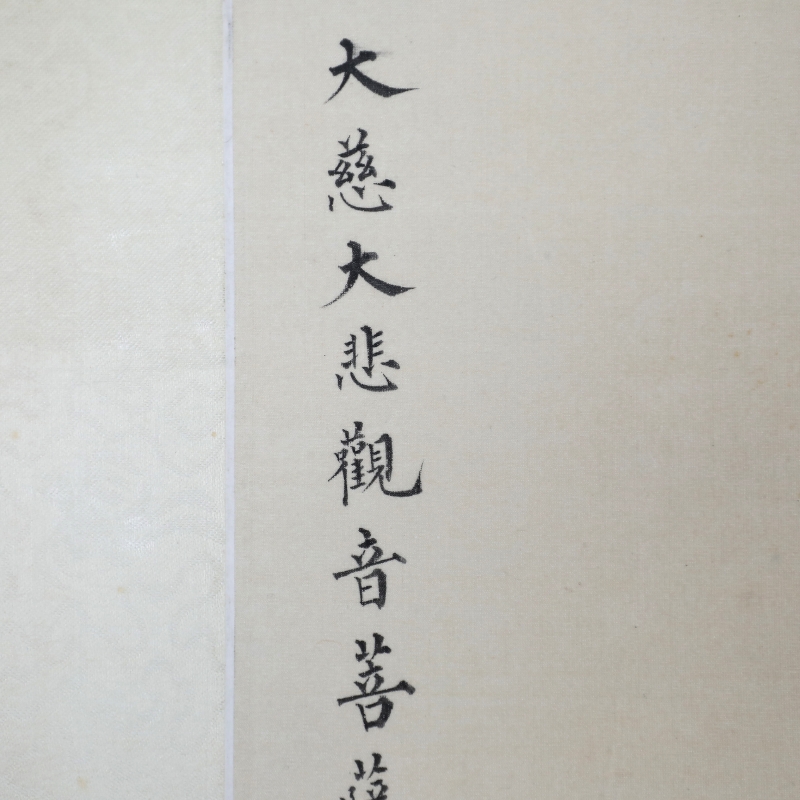 大慈大悲觀音菩薩